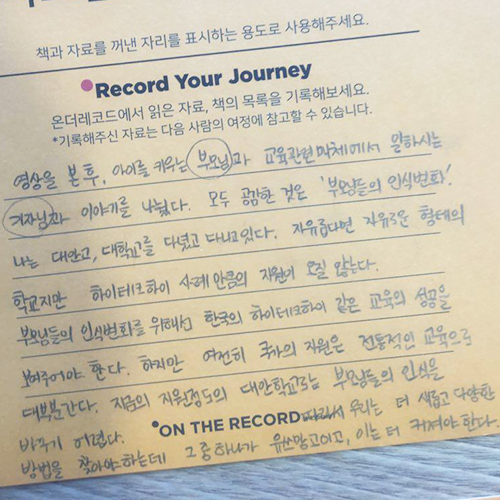 책과 자료를 꺼낸 자리를 표시하는 용도로 사용해주세요.
Record Your Journey
온더레코드에서 읽은 자료, 책의 목록을 기록해보세요.
*기록해주신 자료는 다음 사람의 여정에 참고할 수 있습니다.
영상을 본 후, 아이를 키우는 부모님과 교육관련 매체에서 일하시는
기자님과 이야기를 나눴다. 모두 공감한 것은 '부모님들의 인식변화'.
나는 대안고, 대학교를 다녔고 다니고 있다. 자유롭다면 자유로운 형태의
학교지만 하이테크하이 사례 만큼의 지원이 오질 않는다.
부모님들의 인식변화를 위해선 한국의 하이테크하이 같은 교육의 성공을
보여주어야 한다. 하지만 여전히 국가의 지원은 전통적인 교육으로
대부분간다. 지금의 지원정도의 대안학교로는 부모님들의 인식을
바꾸기 어렵다.
ON THE RECORD 따라서 우리는 더 새롭고 다양한
방법을 찾아야하는데 그 중 하나가 유쓰망고이고, 이는 더 커져야 한다.